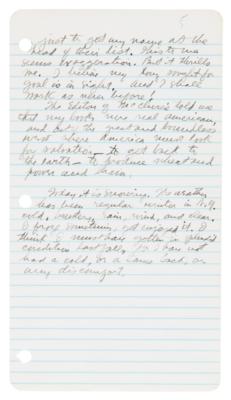 5
just to get my name at the
head of their list. This to me
seems exaggeration. But it thrills
me. I believe my long sought for
goal is in sight, and I shall
work as never before!
The Editor of McClure's told me
that my books were real American,
and but the great and boundless
west where America must look
for salvation — to get back to
the earth — to produce wheat and
power and them.
Today it is snowing. The weather
has been regular winter in N.Y.
cold, rain, wind, and clear.
I froze sometimes, yet enjoyed it. I
think I must have gotten in splendid
condition last fall, for I have not
had a cold, or a lame back, or
any discomfort.